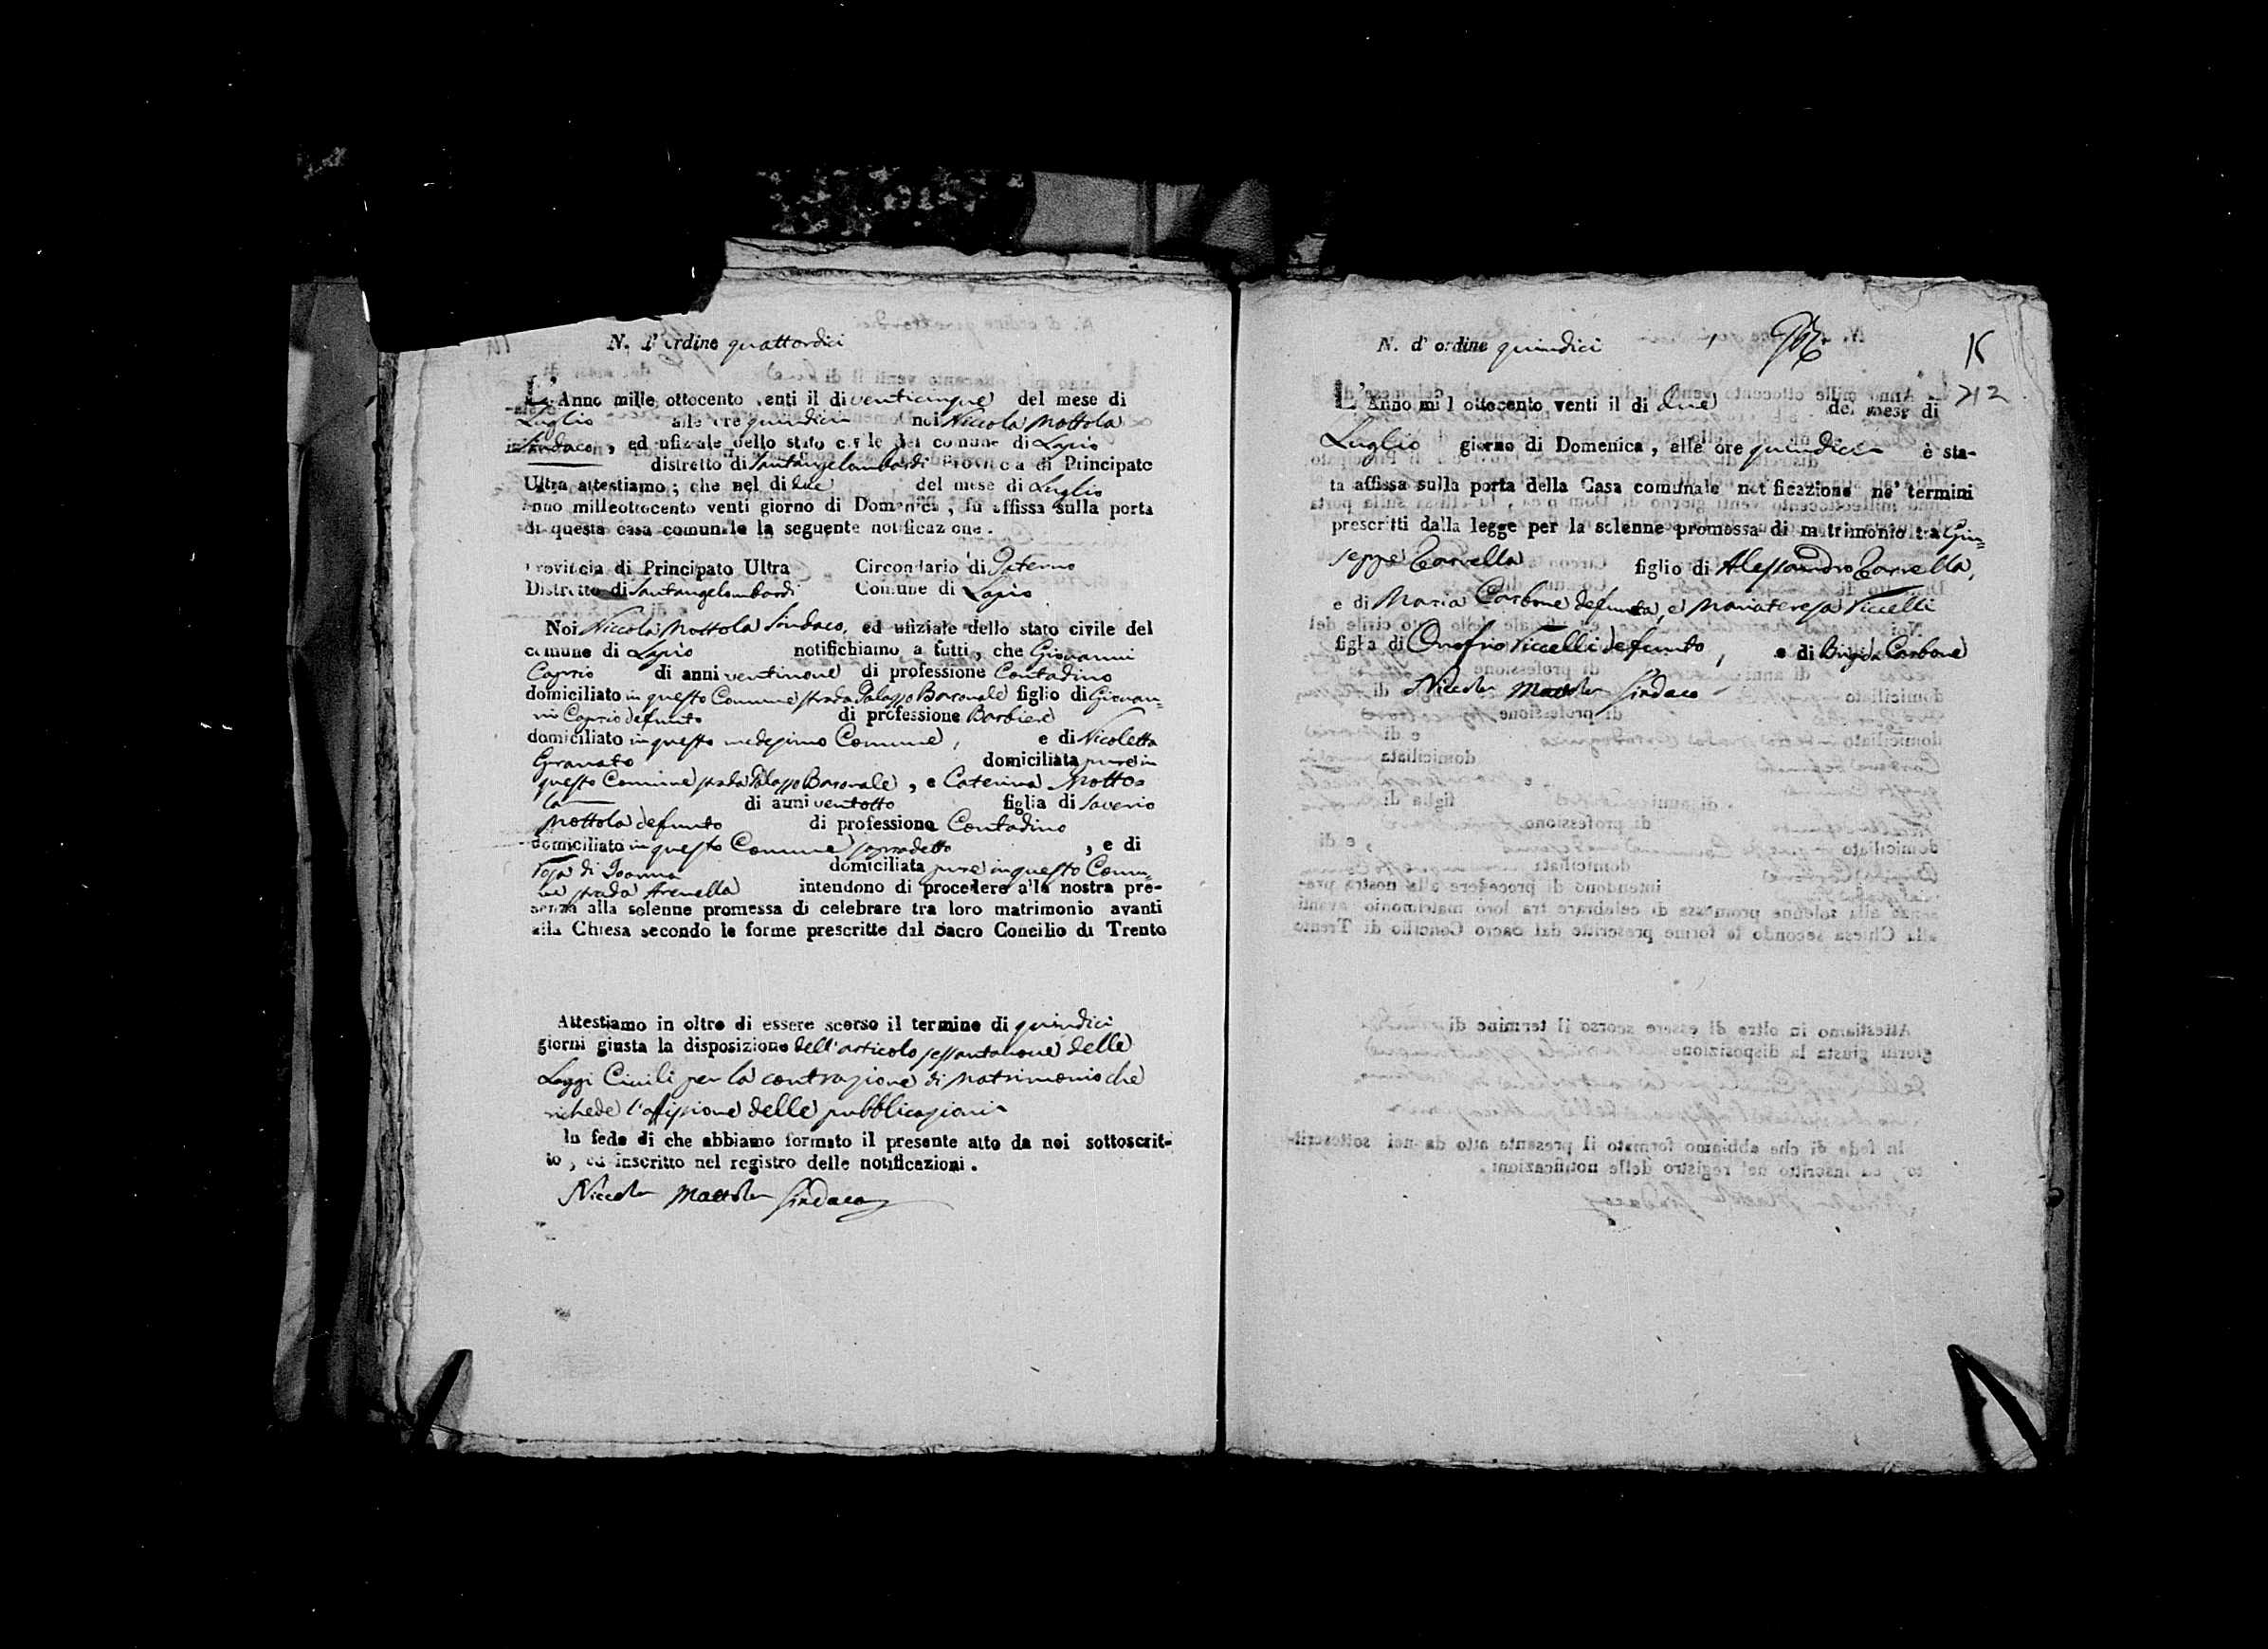 N. d'ordine quattordici
L'Anno mille ottocento venti il di venticinque del mese di
Luglio alle ore quindici noi Niccola Mottola
Sindaco, ed ufiziale dello stato civile del comune di Lapio
distretto di Santangelombardi Provincia di Principato
Ultra attestiamo; che nel di due del mese di Luglio
anno milleottocento venti giorno di Domenica, fu affissa sulla porta
di questa casa comunale la seguente notificazione.
Provincia di Principato Ultra Circondario di Paterno
Distretto di Santangelombardi Comune di Lapio
Noi Niccola Mottola Sindaco, ed ufiziale dello stato civile del
comune di Lapio notifichiamo a tutti, che Giovanni
Caprio di anni ventinove di professione Contadino
domiciliato in questo Comune strada Palazzo Baronale figlio di Giovan=
ni Caprio defunto di professione Barbiere
domiciliato in questo medesimo Comune, e di Nicoletta
Granato domiciliata pure in
questo Comune strada Palazzo Baronale, e Caterina Motto=
la di anni ventotto figlia di Saverio
Mottola defunto di professione Contadino
domiciliato in questo Comune sopradetto, e di
di Joanna domiciliata pure in questo Comu=
ne strada Arenella intendono di procedere alla nostra pre-
senza alla solenne promessa di celebrare tra loro matrimonio avanti
alla Chiesa secondo le forme prescritte dal Sacro Concilio di Trento
Attestiamo in oltre di essere scorso il termine di quindici
giorni giusta la disposizione dell'articolo sessantanove delle
Leggi Civili per la contrazione di Matrimonio che
richede l'affissione delle pubblicazioni
In fede di che abbiamo formato il presente atto da noi sottoscrit-
to, ed inscritto nel registro delle notificazioni.
Niccola Mottola Sindaco
N. d'ordine quindici
15
212
L'Anno mill ottocento venti il di due del mese di
Luglio giorno di Domenica, alle ore quindici è sta-
ta affissa sulla porta della Casa comunale notificazione ne' termini
prescritti dalla legge per la solenne promessa di matrimonio tra Giu=
seppe Carrella figlio di Alessandro Carrella,
e di Maria Carbone defunta, e Mariateresa Viccelli
figlia di Onofrio Viccelli defunto, e di Brigida Carbone
Niccola Mottola Sindaco